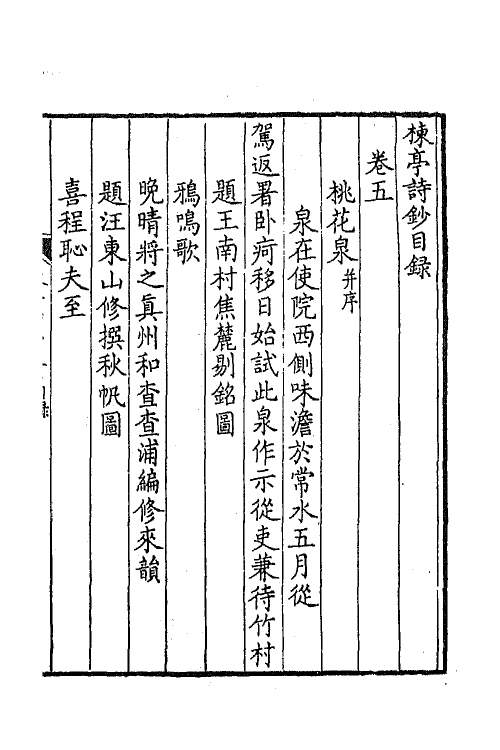 楝亭詩鈔目録
卷五
桃花泉并序
泉在使院西側味澹於常水五月從
駕返署卧疴移日始試此泉作示從吏兼待竹村
題王南村焦麓剔銘圖
鴉鳴歌
晚晴將之真州和查查浦編修來韻
題汪東山修撰秋帆圖
喜程恥夫至